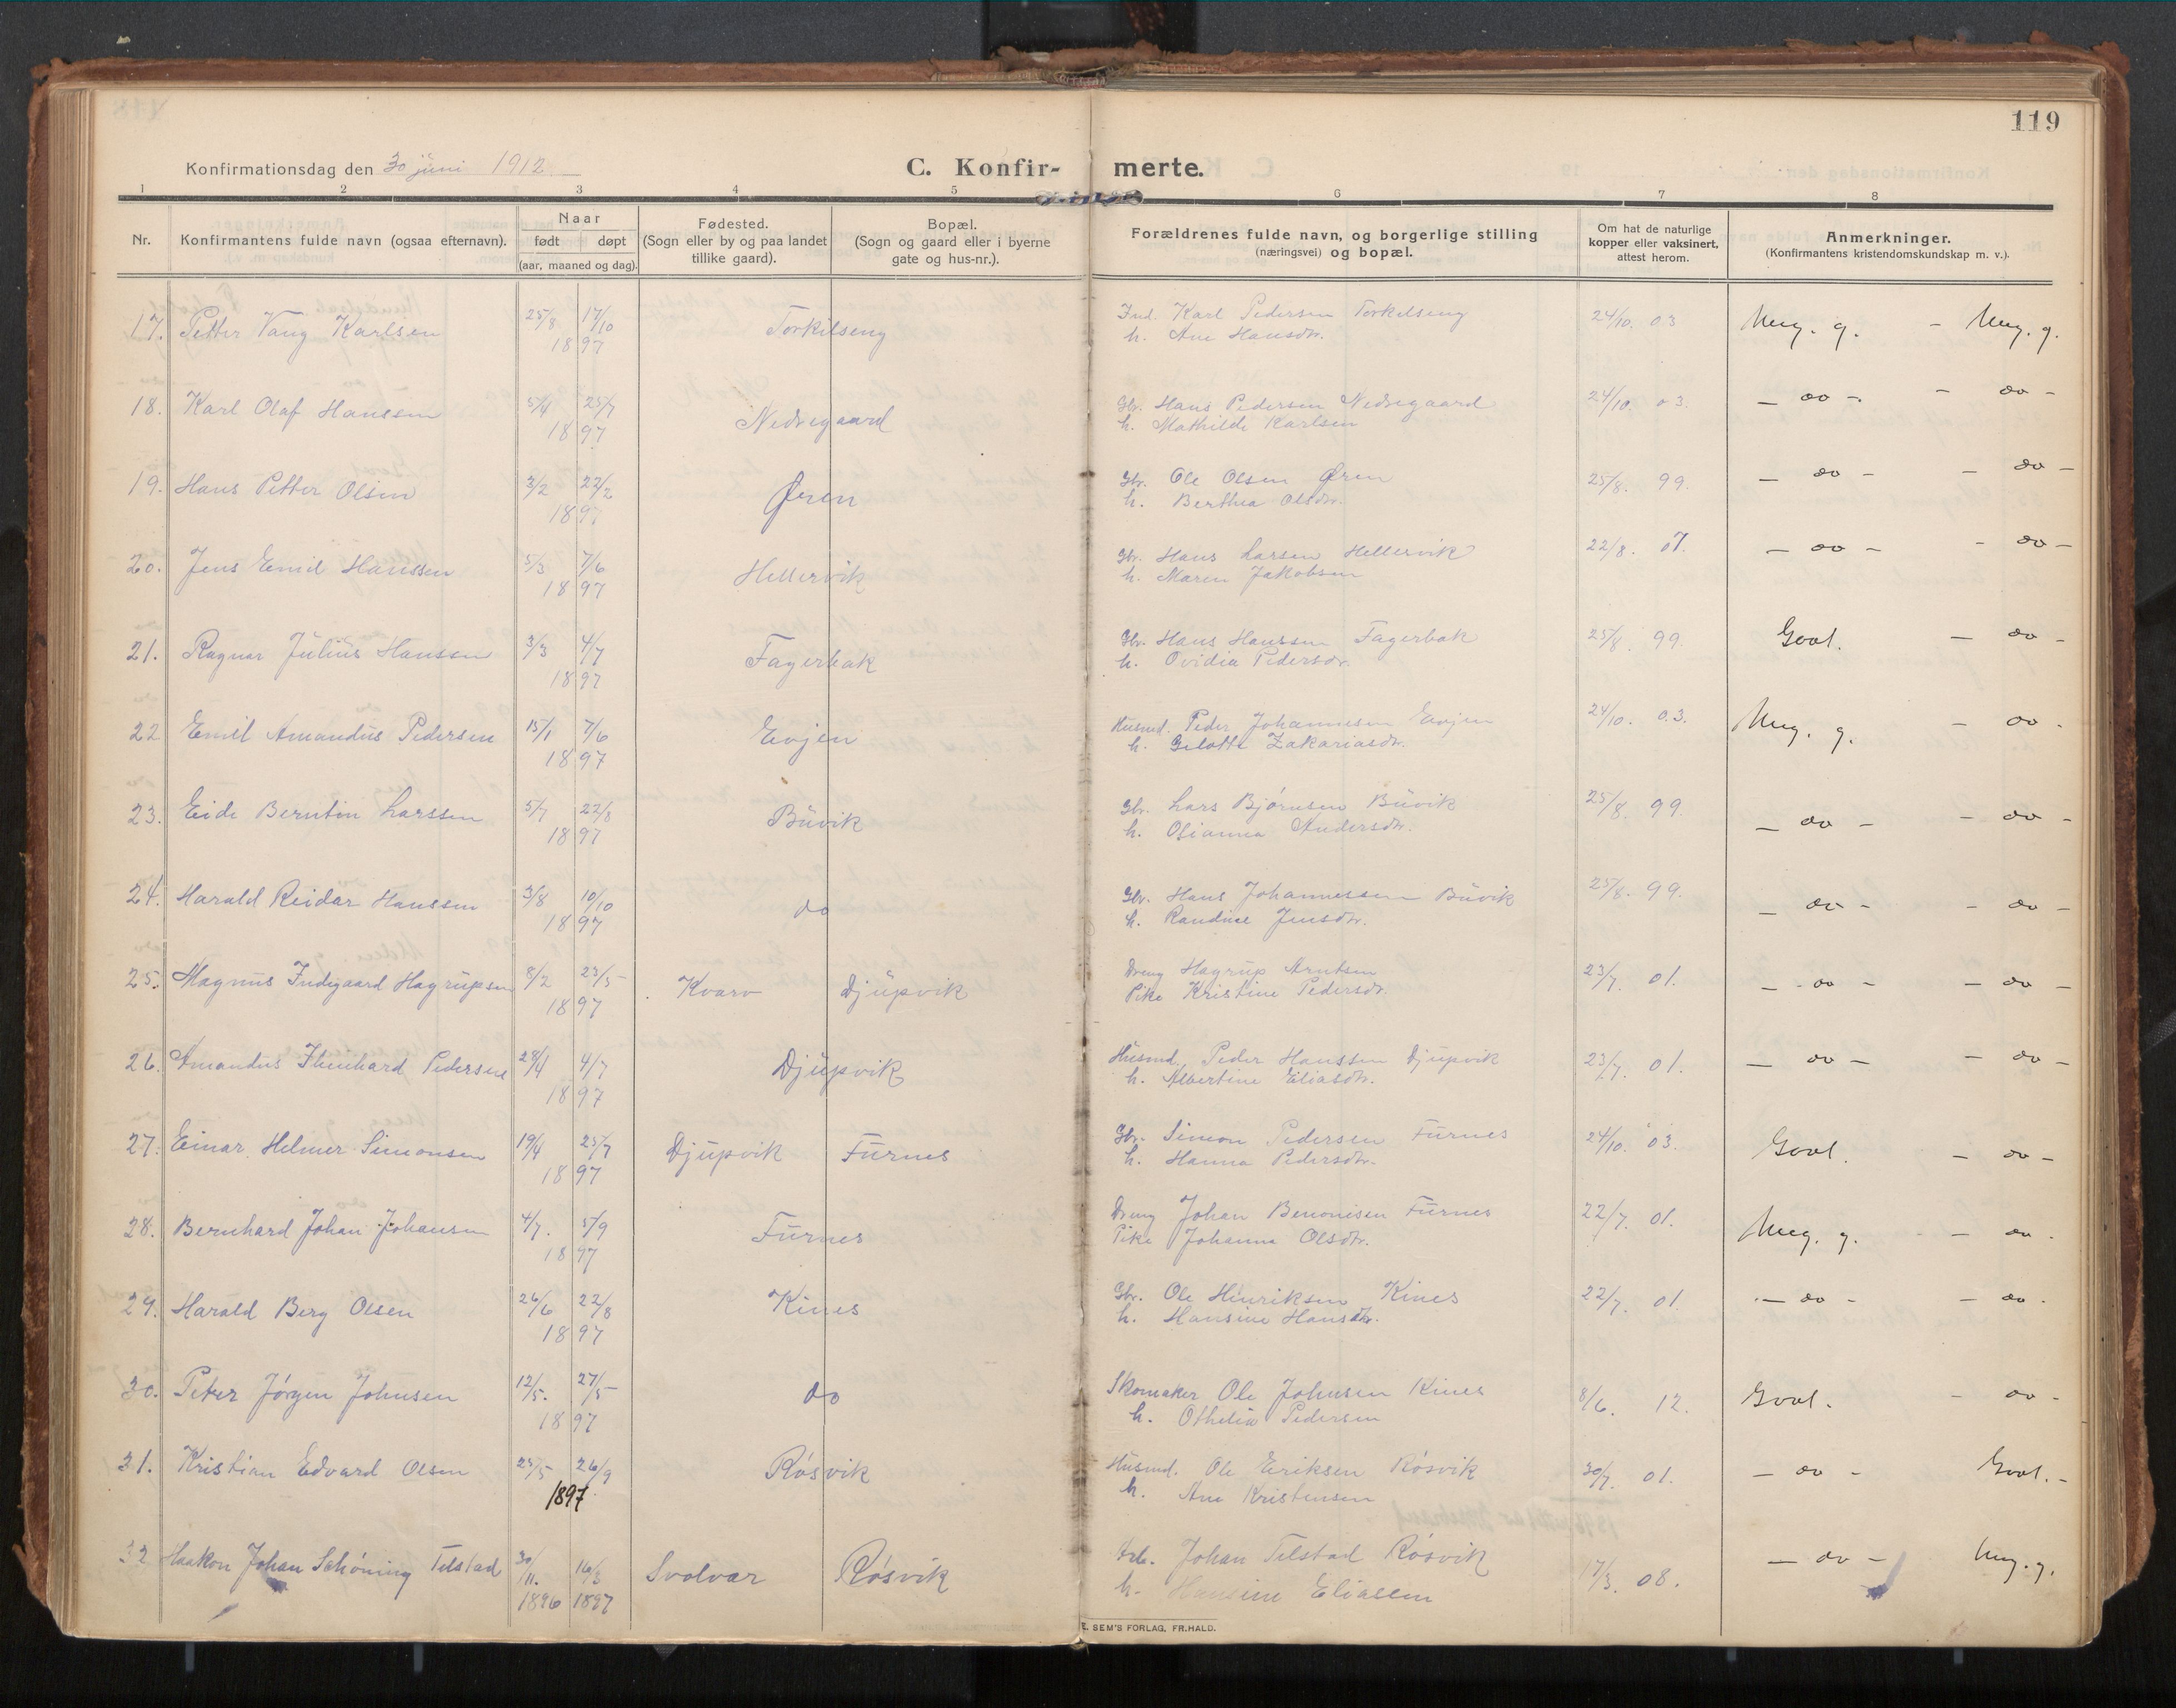 119
Konfirmationsdag den 30 juni 1912.
C. Konfir- merte.
1 2 3 4 5 6 7 8
Nr.
Konfirmantens fulde navn (ogsaa efternavn).
Naar
født døpt
(aar, maaned og dag).
Fødested.
(Sogn eller by og paa landet
tillike gaard).
Bopæl.
(Sogn og gaard eller i byerne
gate og hus-nr.).
Forældrenes fulde navn, og borgerlige stilling
(næringsvei) og bopæl.
Om hat de naturlige
kopper eller vaksinert,
attest herom.
Anmerkninger.
(Konfirmantens kristendomskundskap m. v.).
17. Petter Vang Karlsen 25/8 17/10 Torkilseng Ind. Karl Pedersen Torkelseng 24/10. 03 Meg. g. - Meg. g.
1897 h. Ane Hansdtr.
18. Karl Olaf Hanssen 5/4 25/7 Nedregaard Gbr. Hans Pedersen Nedregaard 24/10. 03. - do - - do -
1897 h. Mathilde Karlsen
19. Hans Petter Olsen 3/2 22/2 Øren Gbr. Ole Olsen Øren 25/8. 99. - do - - do -
1897 h. Berthea Olsdtr.
20. Jens Emil Hanssen 5/3 7/6 Hellervik Gbr. Hans Larsen Hellervik 22/8. 07. - do - - do -
1897 h. Maren Jakobsen
21. Ragnar Julius Hanssen 3/3 4/7 Fagerbak Gbr. Hans Hanssen Fagerbak 25/8. 99. Godt. - do -
1897 h. Ovidia Pedersdtr.
22 Emil Amandus Pedersen 15/1 7/6 Evjen Husmd. Peder Johannesen Evjen 24/10. 03. Meg. g. - do -
1897 h. Gelotte Zakariasdtr.
23. Eide Berntin Larssen 5/7 22/8 Buvik Gbr. Lars Bjørnsen Buvik 25/8. 99. - do - - do -
1897 h. Olianna Andersdtr.
24. Harald Reidar Hanssen 3/8 10/10 do Gbr. Hans Johannessen Buvik 25/8. 99. - do - - do -
1897 h. Randine Jensdtr.
25. Magnus Indegaard Hagrupsen 8/2 23/5 Kvarv Djupvik Dreng Hagrup Arntsen 23/7. 01. - do - - do -
1897 Pike Kristine Pedersdtr.
26. Amandus Pedersen 28/4 4/7 Djupvik Husmd. Peder Hanssen Djupvik 23/7. 01. - do - - do -
1897 h. Albertine Eliasdtr.
27. Einar Helmer Simonsen 19/4 25/7 Djupvik Furnes Gbr. Simon Pedersen Furnes 24/10. 03. Godt. - do -
1897 h. Hanna Pedersdtr.
28. Bernhard Johan Johansen 4/7. 5/9 Furnes Dreng Johan Benonisen Furnes 22/7. 01. Meg. g. - do -
1897 Pike Johanna Olsdtr.
29. Harald Berg Olsen 26/6 22/8 Kines Gbr. Ole Henriksen Kines 22/7. 01. - do - - do -
1897 h. Hansine Hansdtr.
30. Peter Jørgen Johnsen 12/5. 27/5 do Skomaker Ole Johnsen Kines 8/6. 12. Godt. - do -
1897 h. Othelia Pedersen
31. Kristian Edvard Olsen 25/5 26/9 Røsvik Husmd. Ole Eriksen Røsvik 30/7. 01. - do - Godt. -
1897 h. Ane Kristensen
32 Haakon Johan Schøning Tilstad 30/11. 16/3 Svolvær Røsvik Arb. Johan Tilstad Røsvik 17/3. 08. - do - Meg. g.
1896 1897 h. Hansine Eliassen
E. SEM'S FORLAG, FR.HALD.